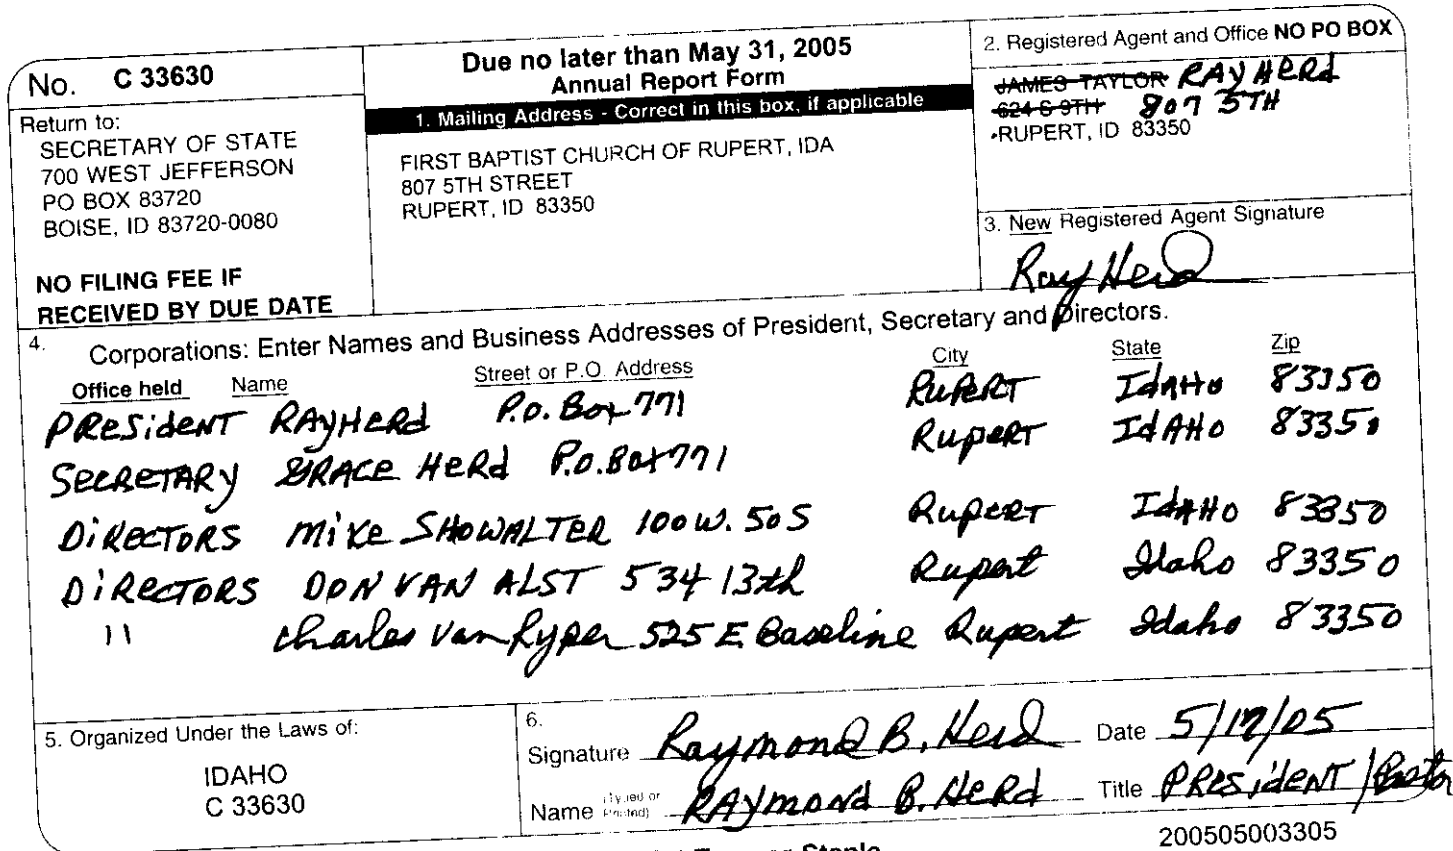 No. C 33630
Return to:
SECRETARY OF STATE
700 WEST JEFFERSON
PO BOX 83720
BOISE, ID 83720-0080
NO FILING FEE IF
RECEIVED BY DUE DATE
Due no later than May 31, 2005
Annual Report Form
1. Mailing Address - Correct in this box, if applicable
FIRST BAPTIST CHURCH OF RUPERT, IDA
807 5TH STREET
RUPERT, ID 83350
2. Registered Agent and Office NO PO BOX
JAMES TAYLOR RAY HERd
624 S 9TH 807 5TH
RUPERT, ID 83350
3. New Registered Agent Signature
Ray Herd
4. Corporations: Enter Names and Business Addresses of President, Secretary and Directors.
Office held Name Street or P.O. Address City State Zip
PResideNT RAY HeRd P.O. Box 771 RupeRT IdAHo 83350
SecReTARy GRACE HeRd P.O. Box 771 RupeRT IdAHo 83350
DiRecToRS Mike SHOWALTER 100 W. 50 S RupeRT IdAHo 83350
DiRecToRS DON VAN ALST 534 13th Rupert Idaho 83350
11 Charles Van Ryper 525 E. Baseline Rupert Idaho 83350
5. Organized Under the Laws of:
IDAHO
C 33630
6.
Signature Raymond B. Herd Date 5/17/05
Name (Typed or Printed) RAymoNd B. HeRd Title PResideNT / Pastor
200505003305